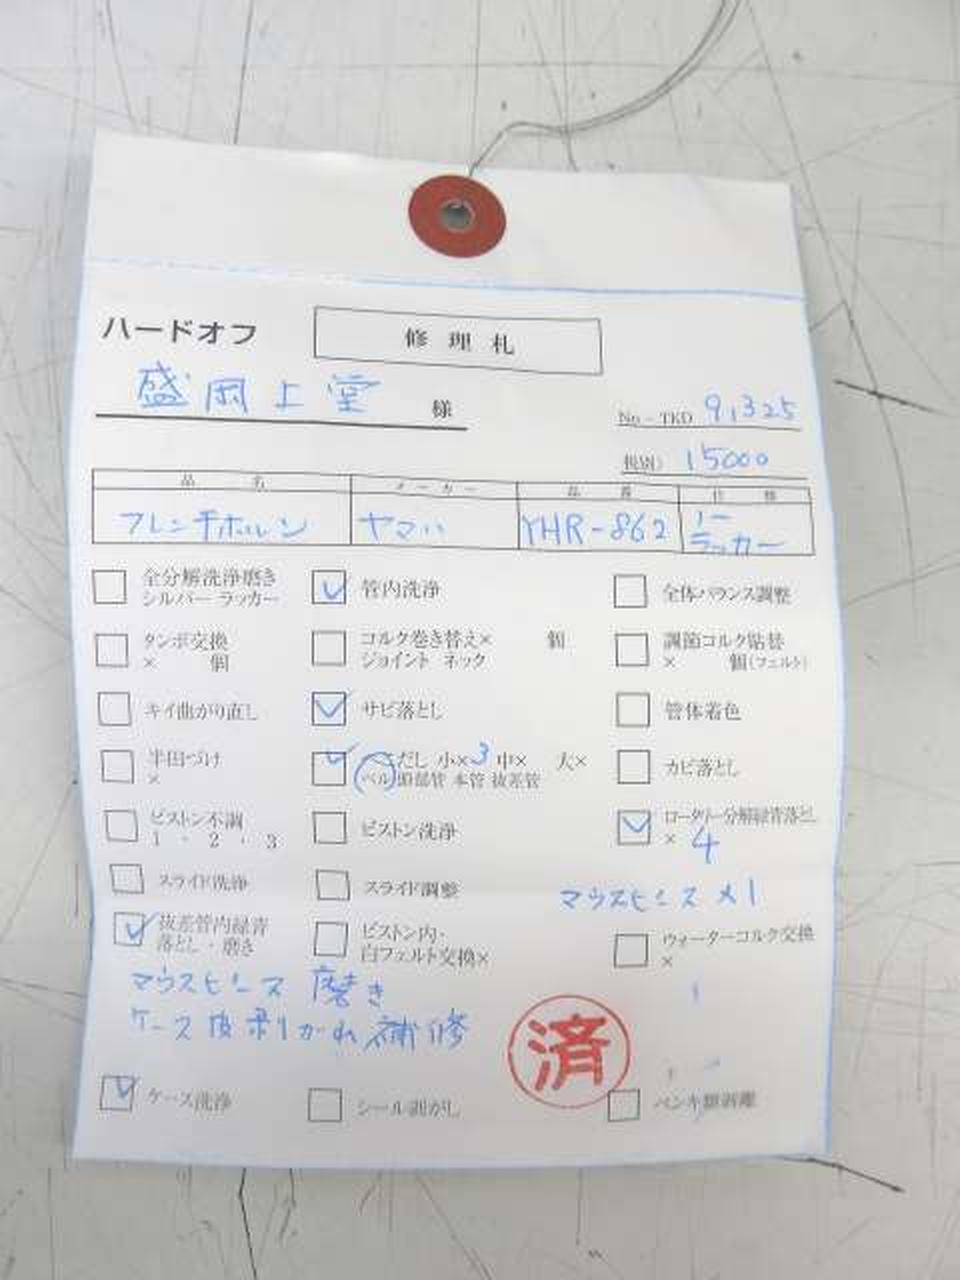 ハードオフ 修理札
盛岡上堂 様
No－TKD 91325
税別) 15000
品名 メーカー 品番 仕様
フレンチホルン ヤマハ YHR-862 ラッカー
全分解洗浄磨き
シルバー ラッカー
管内洗浄
全体バランス調整
タンポ交換
× 個
コルク巻き替え× 個
ジョイント ネック
調節コルク貼替
× 個(フェルト)
キイ曲がり直し
サビ落とし
管体着色
半田づけ
×
だし 小×3 中× 大×
ベル 頭部管 本管 抜差管
カビ落とし
ピストン不調
1 ・ 2 ・ 3
ピストン洗浄
ロータリー分解緑青落とし
× 4
スライド洗浄
スライド調整
マウスピース ×1
抜差管内緑青
落とし・磨き
ピストン内・
白フェルト交換×
ウォーターコルク交換
×
マウスピース 磨き
ケース皮剥がれ補修
済
ケース洗浄
シール剥がし
ペンキ類剥離